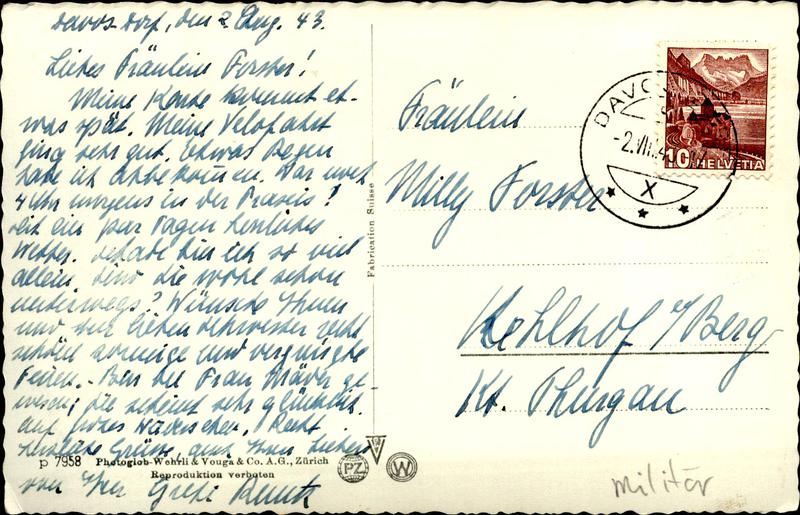 Davos-Dorf, den 2. Aug. 43.
Liebes Fräulein Forster!
Meine Karte kommt et-
was spät. Meine Velofahrt
ging sehr gut. Etwas Regen
habe ich abbekommen. War um
4 Uhr morgens in der Praxis!
Seit ein par Tagen herrliches
Wetter. Schade bin ich so viel
allein. Sind Sie wohl schon
unterwegs? Wünsche Ihnen
und der lieben Schwester recht
schöne sonnige und vergnügte
Ferien. - Bin bei Frau Mäder ge-
wesen; sie scheint sehr glücklich
auf
herzliche Grüsse auch Ihren Lieben
von Ihrer Greti
p 7958 Photoglob-Wehrli & Vouga & Co. A.G., Zürich
Reproduktion verboten
PZ
W
Fabrication Suisse
DAVOS
-2.VIII.4
X
10 HELVETIA
Fräulein
Milly Forster
Kehlhof s/Berg
Kt. Thurgau
Militär